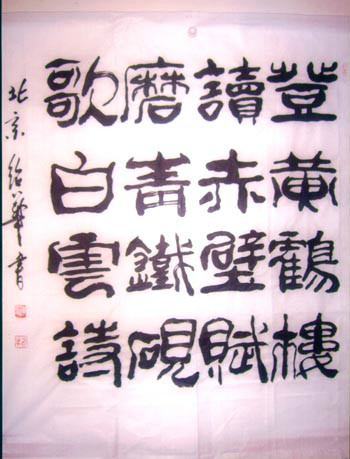 登黄鶴樓
讀赤壁賦
磨青鐵硯
歌白雲詩
北京绍華書